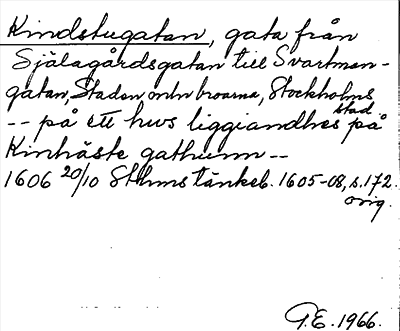 Kindstugatan, gata från
Själagårdsgatan till Svartman-
gatan, Staden mln broarna, Stockholms
stad
-- på ett hws liggiandhes på
Kinhäste gathunn --
1606 20/10 Sthms tänkeb. 1605-08, s. 172.
orig.
G.E. 1966.